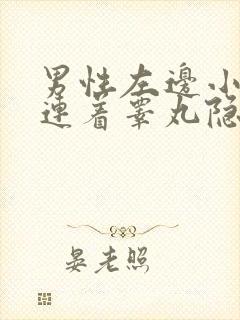 男性左邊小
連着睾丸隐
晏老照